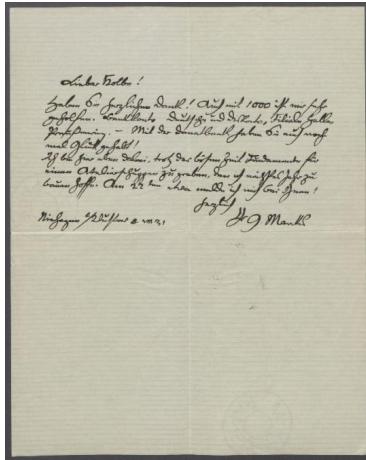 Lieber Kolbe!
Haben Sie herzlichen Dank! Auch mit 1000 ist mir sehr
geholfen. Bankkonto Deutsche und Disconto, Filiale Halle
. – Mit der Danatbank haben Sie auch noch
mal Glück gehabt!
Ich bin hier oben dabei, trotz der bösen Zeit Fundamente für
einen Atelierschuppen zu graben, den ich nächstes Jahr zu
bauen hoffe. Am 27ten etwa melde ich mich bei Ihnen!
Herzlich
G Marcks
Niehagen b/Wustrow